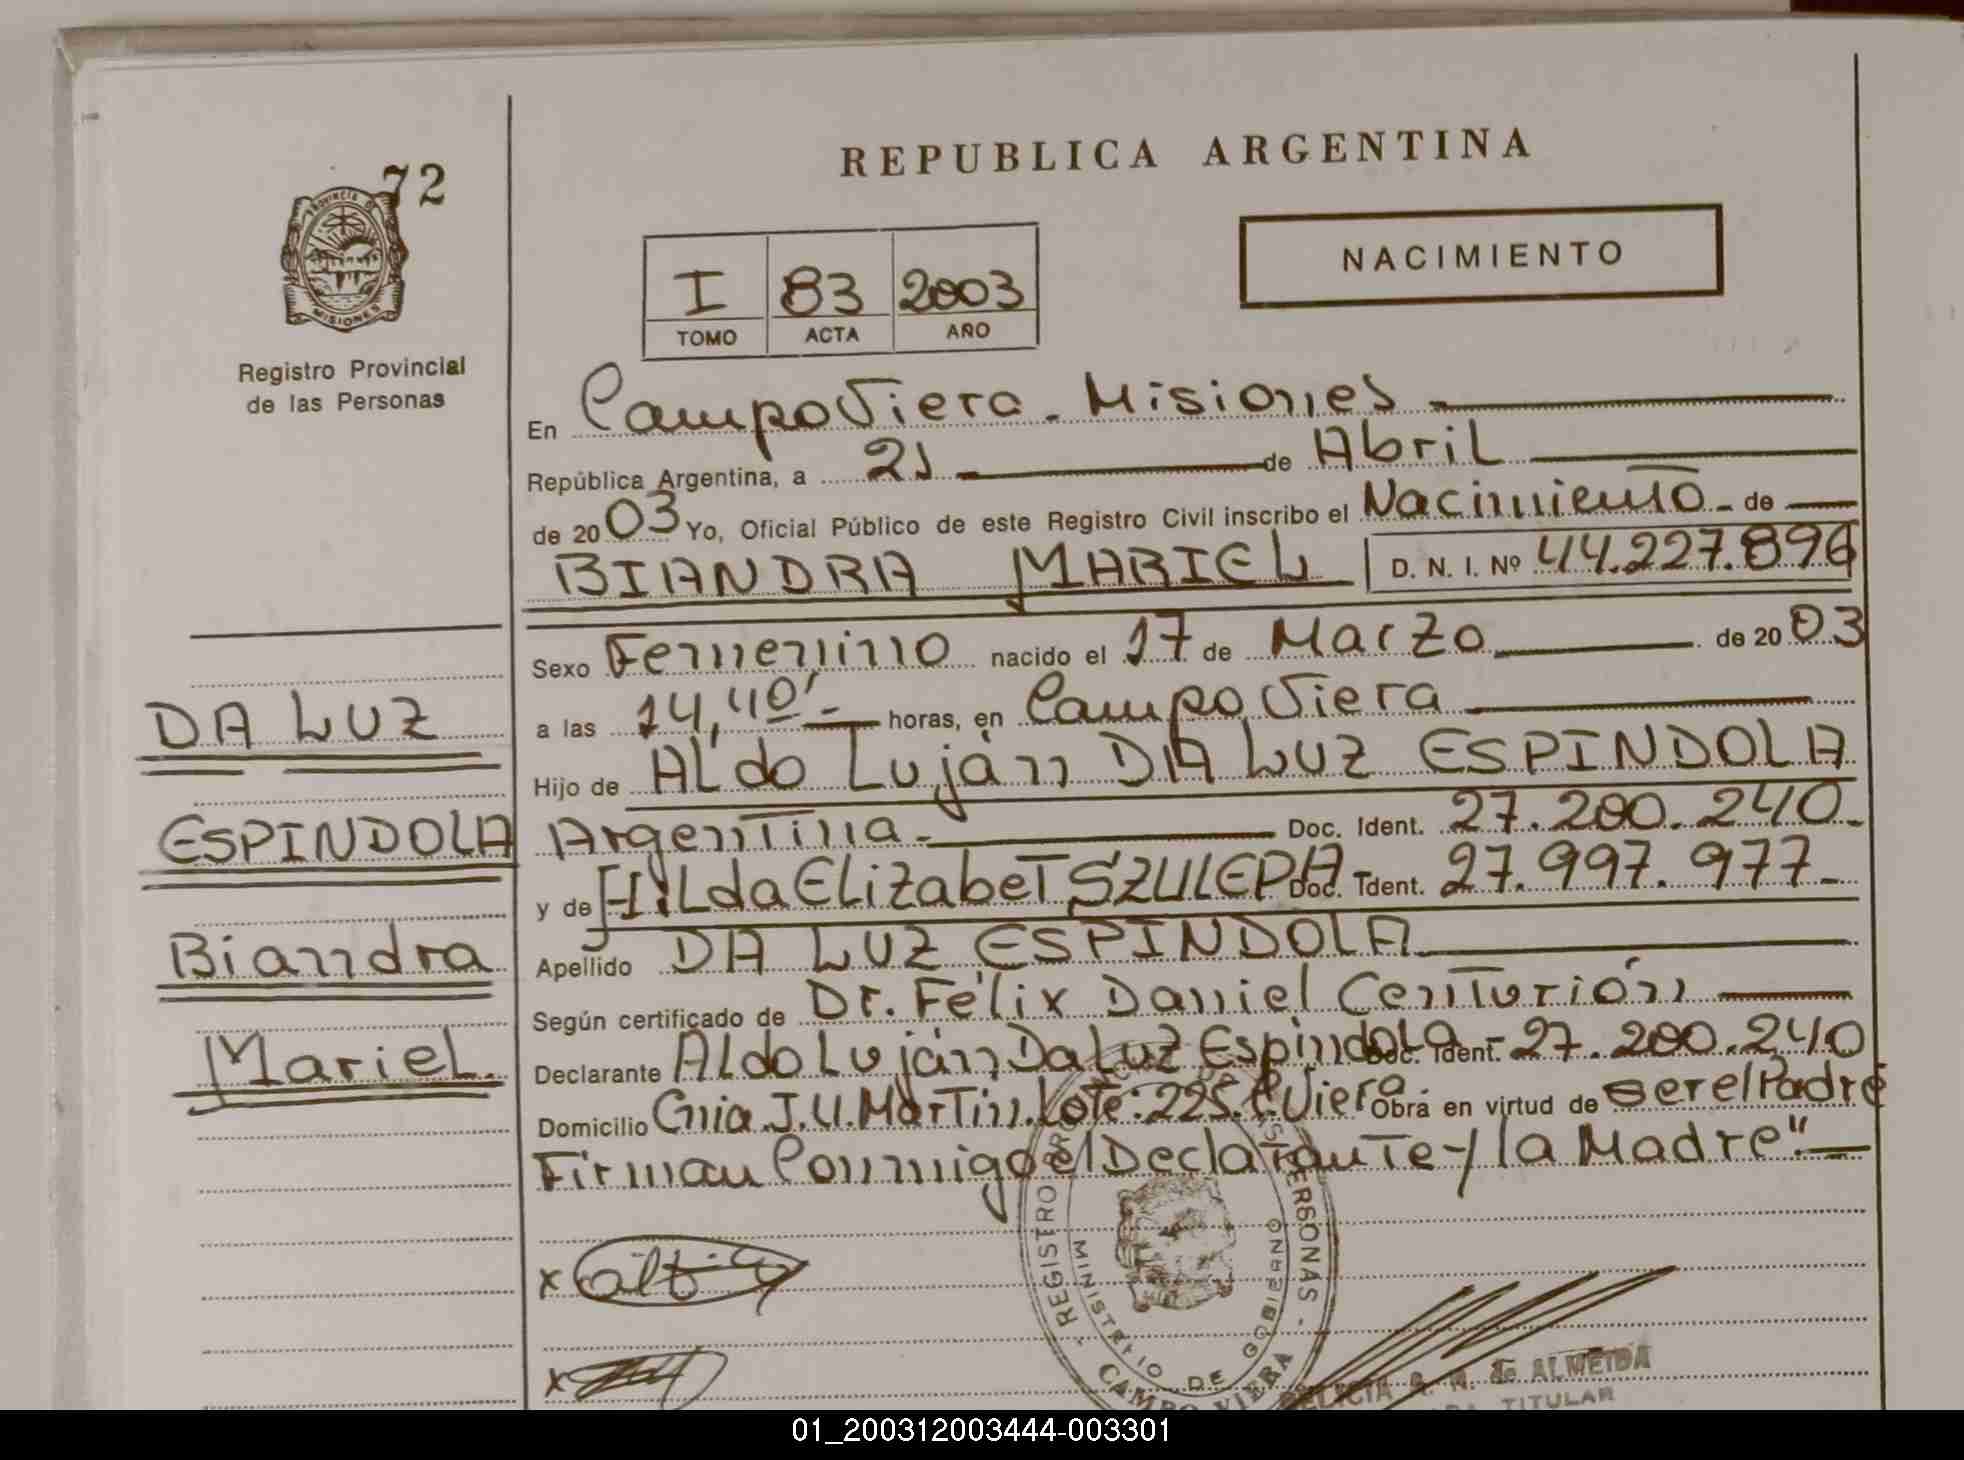 72
PROVINCIA D
MISIONES
Registro Provincial
de las Personas
REPUBLICA ARGENTINA
NACIMIENTO
I 83 2003
TOMO ACTA AÑO
En Campo Viera - Misiones
República Argentina, a 21 de Abril
de 2003 Yo, Oficial Público de este Registro Civil inscribo el Nacimiento - de
BIANDRA MARIEL D. N. I. Nº 44.227.896
Sexo Femenino nacido el 17 de Marzo de 2003
a las 14,40' - horas, en Campo Viera
Hijo de Aldo Luján DA LUZ ESPINDOLA
Argentina - Doc. Ident. 27.200.240-
y de Hilda Elizabet SZULEPA Doc. Ident. 27.997.977-
Apellido DA LUZ ESPINDOLA
Según certificado de Dr. Félix Daniel Centurión
Declarante Aldo Luján Da Luz Espindola Doc. Ident. - 27.200.240
Domicilio Cnia. J.U. Martin. Lote: 225. C. Viera Obra en virtud de ser el Padre
Firman Conmigo el Declarante y la Madre"
DA LUZ
ESPINDOLA
Biandra
Mariel.
x
x
REGISTRO PERSONAS
MINISTERIO DE GOBIERNO
CAMPO VIERA
DE ALMEIDA
TITULAR
01_200312003444-003301